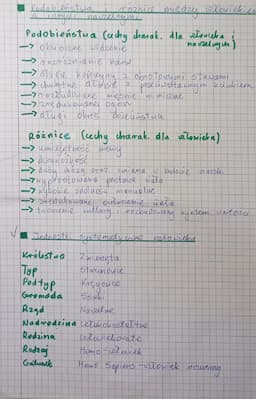 Podobieństwa i różnice między człowiekiem
a innymi naczelnymi
Podobieństwa (cechy charak. dla człowieka i
naczelnych)
→ obuoczne widzenie
→ rozróżnianie barw
→ długie kończyny z obrotowymi stawami
→ chwytne dłonie z przeciwstawnym kciukiem
→ rozbudowane mięśnie mimiczne
→ zredukowany ogon
→ długi okres dzieciństwa
Różnice (cechy charak. dla człowieka)
→ umiejętność mowy
→ dwunożność
→ duży mózg oraz zmiana w budowie czaszki
→ wyprostowana postawa ciała
→ wybitne zdolności manualne
→ zredukowane owłosienie ciała
→ tworzenie kultury i rozbudowany system wartości
Jednostki systematyczne człowieka
Królestwo Zwierzęta
Typ Strunowce
Podtyp Kręgowce
Gromada Ssaki
Rząd Naczelne
Nadrodzina Człekokształtne
Rodzina Człowiekowate
Rodzaj Homo - człowiek
Gatunek Homo Sapiens - człowiek rozumny